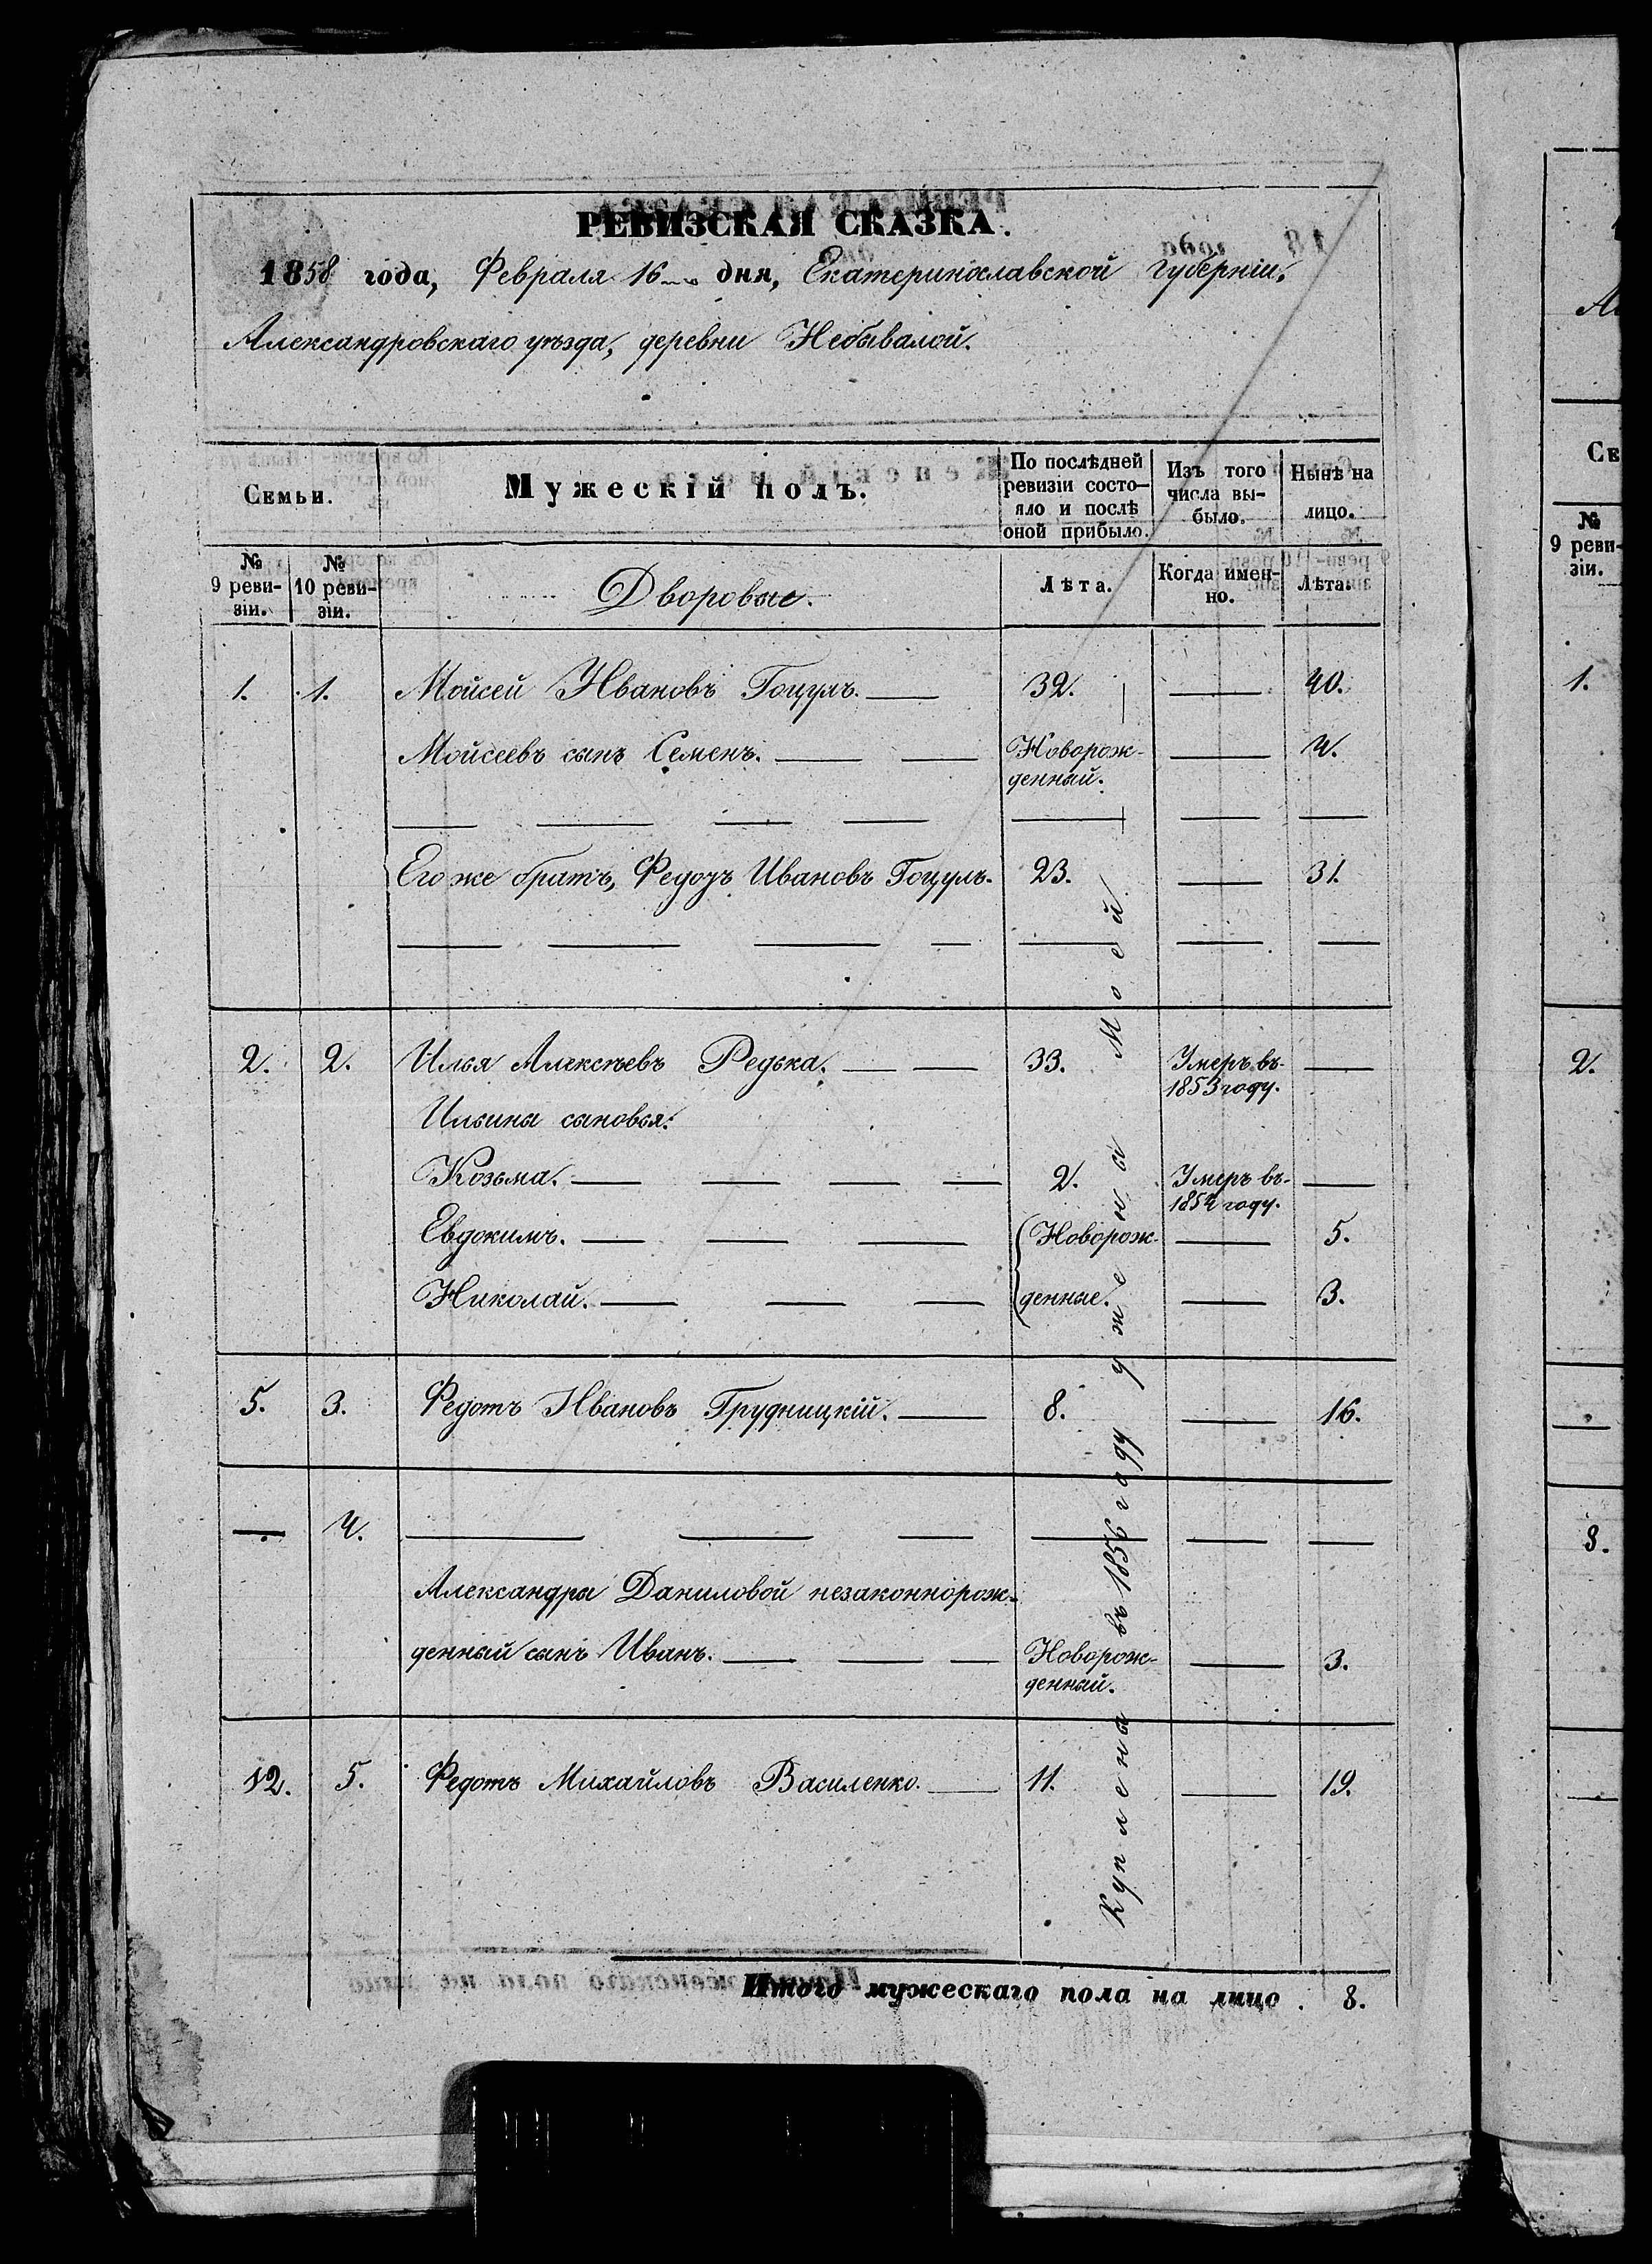 РЕВИЗСКАЯ СКАЗКА.
1858 года, Февраля 16го дня, Екатеринославской губерніи,
Александровскаго уѣзда, деревни Небывалой.
Семьи.
Мужескій полъ.
По послѣдней ревизіи состо-
яло и послѣ оной прибыло.
Изъ того числа вы-
было.
Нынѣ на лицо.
№ 9 реви-
зіи.
№ 10 реви-
зіи.
Дворовые.
Лѣта.
Когда имен-
но.
Лѣта.
1. 1. Мойсей Ивановъ Гоцулъ. 32. 40.
Мойсеевъ сынъ Семенъ. Новорож- 4.
денный.
Его же братъ, Федоръ Ивановъ Гоцулъ. 23. 31.
2. 2. Илья Алексѣевъ Редька. 33. Умеръ въ
1853 году.
Ильины сыновья:
Козьма. 2. Умеръ въ
1854 году.
Евдокимъ. Новорож- 5.
Николай. денные. 3.
5. 3. Федотъ Ивановъ Грудницкій. 8. 16.
4.
Александры Даниловой незаконнорож-
денный сынъ Иванъ. Новорож- 3.
денный.
12. 5. Федотъ Михайловъ Василенко. 11. 19.
Куплены въ 1856 году у жены Моей
Итого мужескаго пола на лицо . 8.
Се
№
9 реви-
зіи.
1.
2.